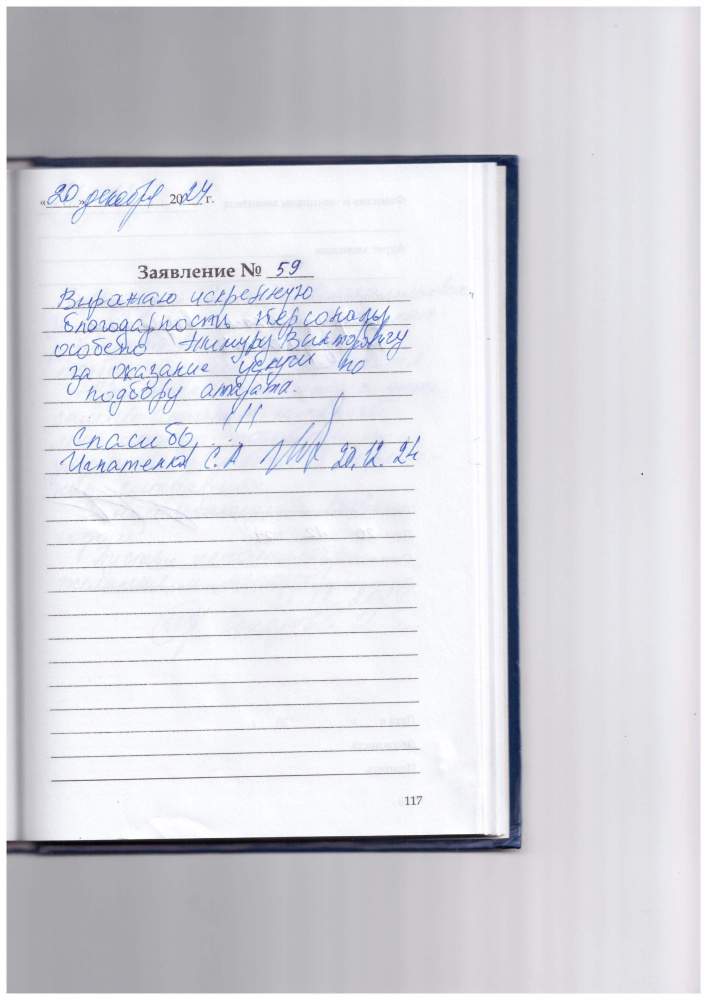 «20» декабря 2024 г.
Заявление № 59
Выражаю искреннюю
благодарность персоналу,
особено Тимуру Викторовичу
за оказание услуги по
подбору аппарата.
Спасибо !!!
Игнатенко С.А 20.12.24
117